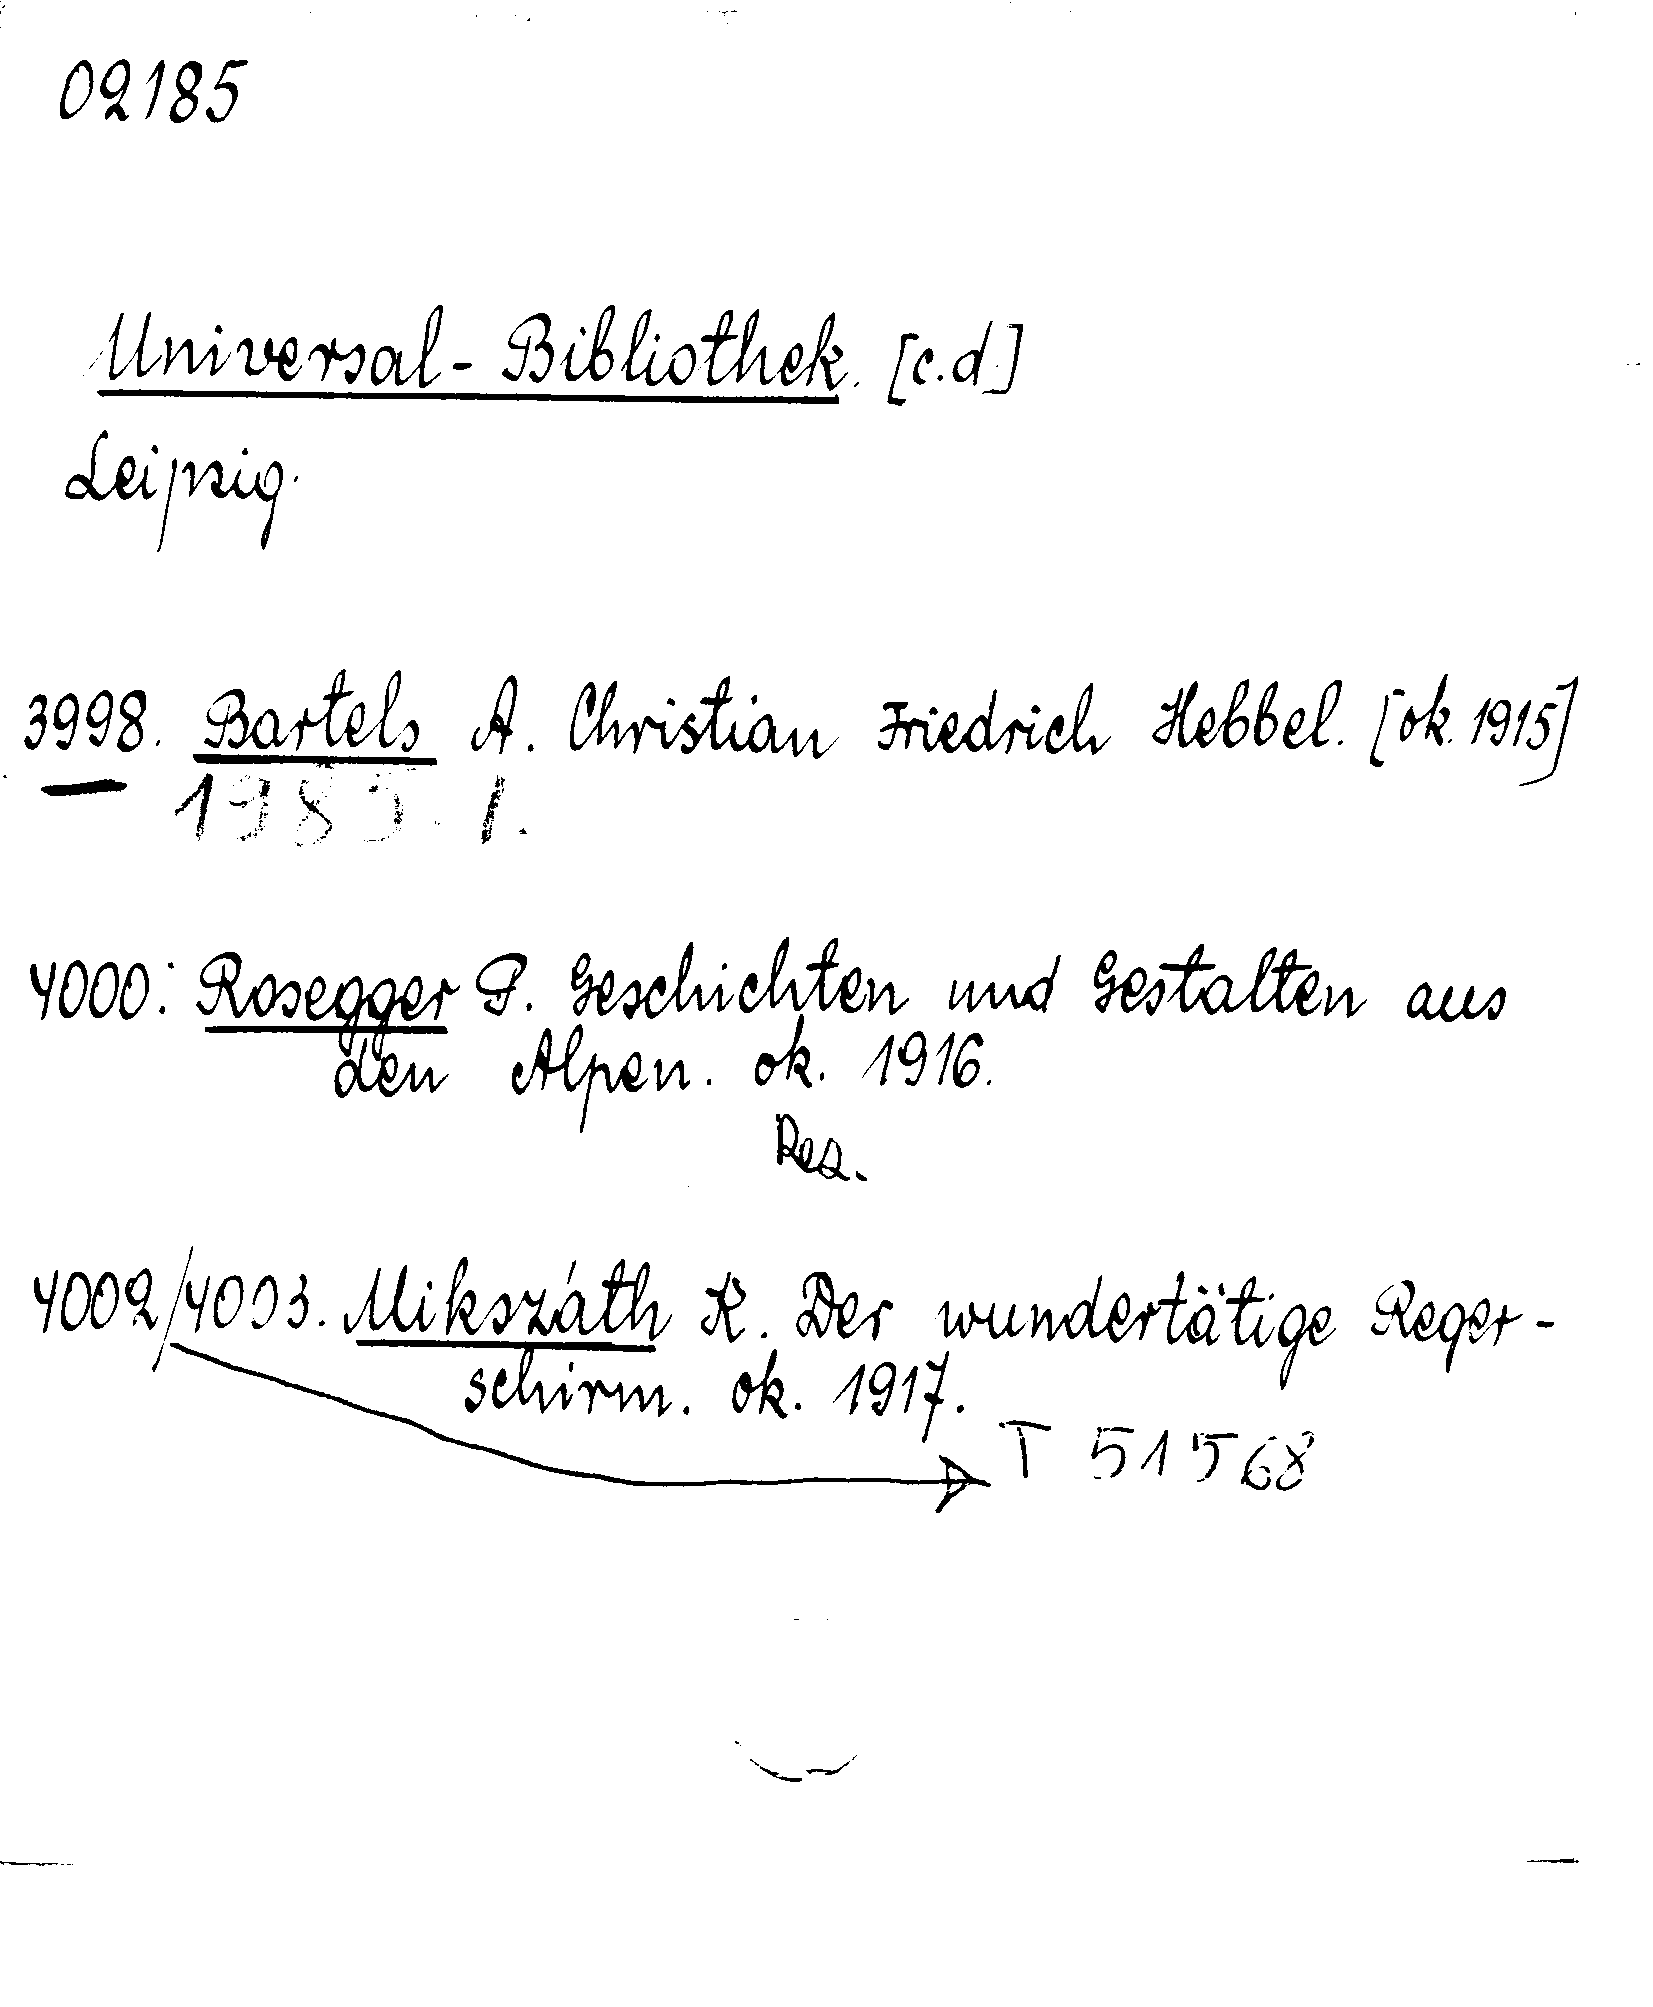 02185
Universal-Bibliothek. [c.d.]
Leipzig.
3998. Bartels A. Christian Friedrich Hebbel. [ok. 1915]
1985. 1.
4000. Rosegger P. Geschichten und Gestalten aus
den Alpen. ok. 1916.
Rez.
4002/4003. Mikszáth K. Der wundertätige Reger-
schirm. ok. 1917.
T 51568